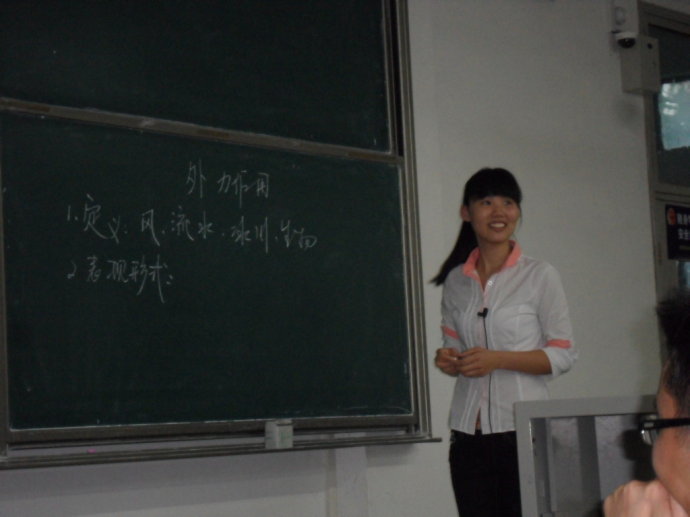 外力作用
1、定义、风、流水、冰川、生物
2、表现形式：
安全